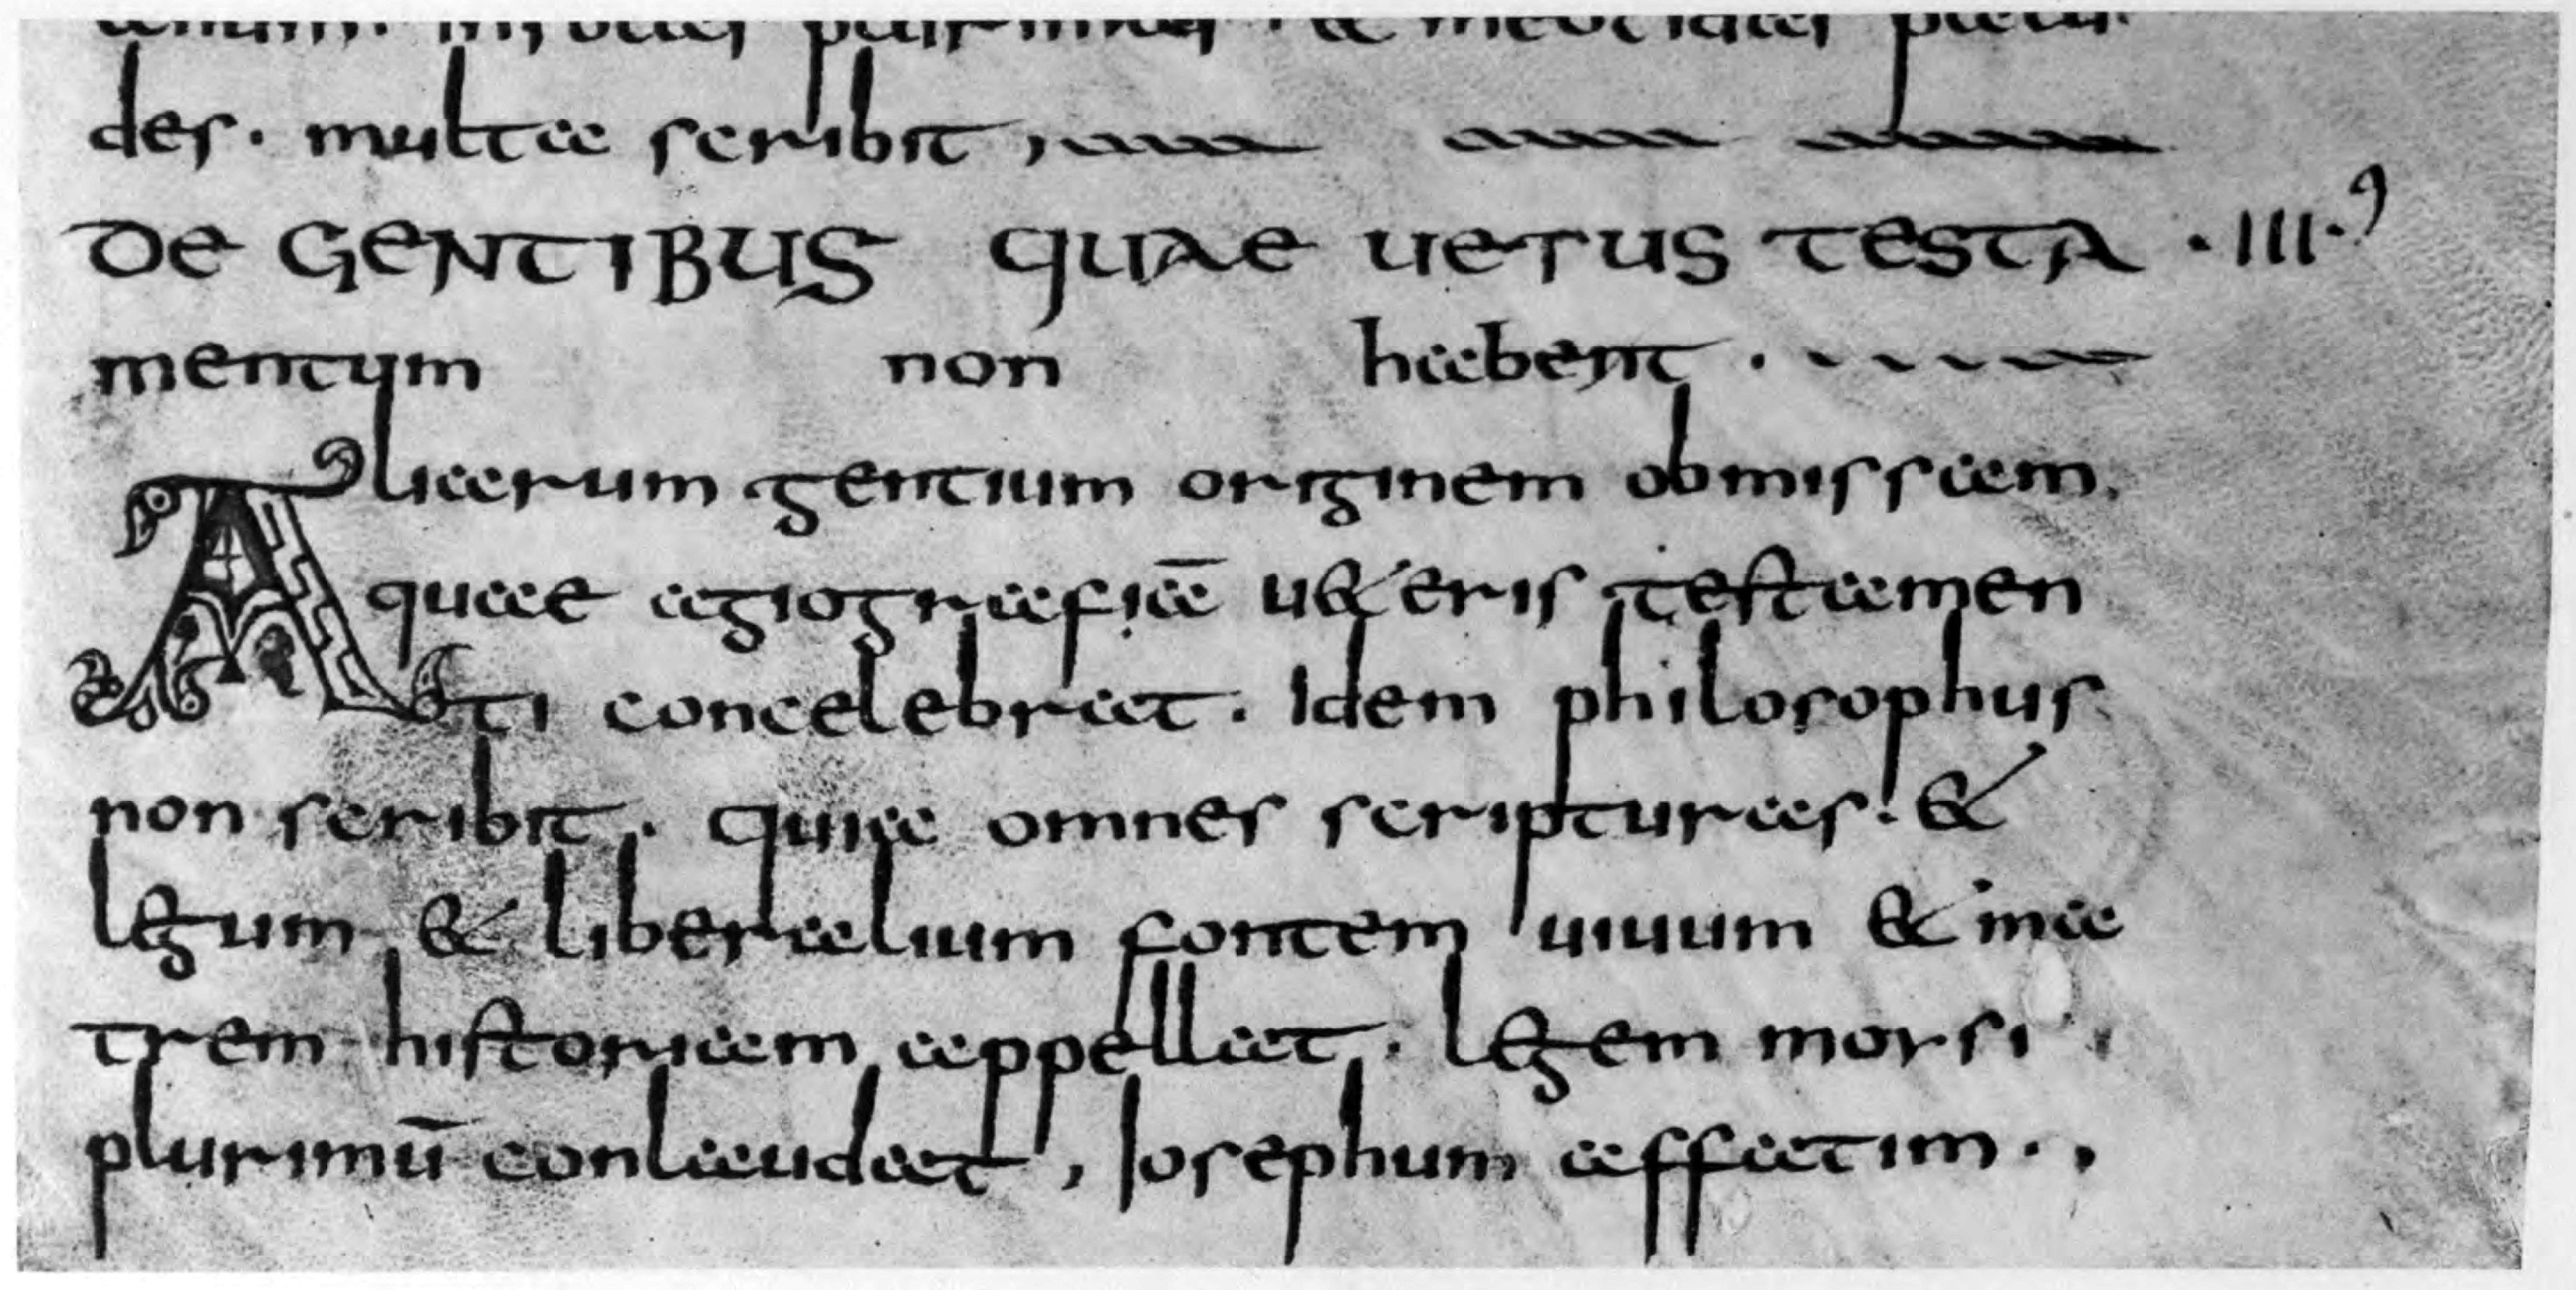 plurimas · & meotidas palu
des · multa scribit ,
DE GENTIBUS QUAE UETUS TESTA · III ·
mentum non habent ·
Aliarum gentium originem obmissam.
quae agiografiā u&eris testamen
ti concelebrat . Idem philosophus
non scribit . Quia omnes scripturas . &
legum & liberalium fontem uiuum & ma
trem historiam appellat . legem moysi
plurimū conlaudat , Iosephum affatim · ,